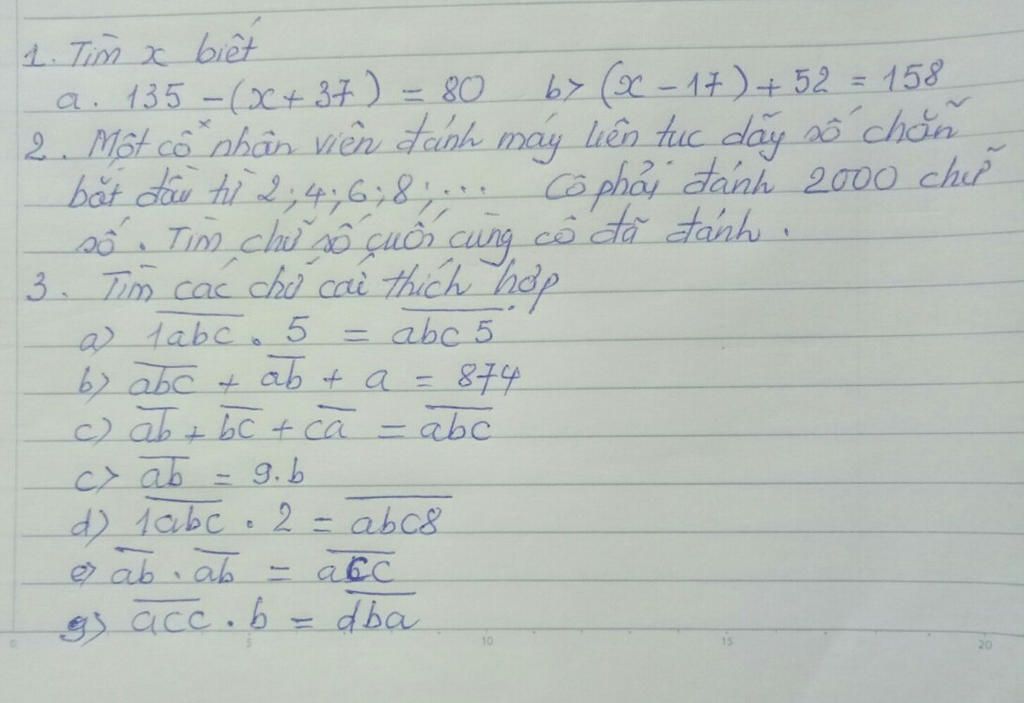 1. Tìm x biết
a. 135 - (x + 37) = 80 b> (x - 17) + 52 = 158
2. Một cô nhân viên đánh máy liên tuc dãy số chẵn
bắt đầu từ 2;4;6;8;... Cô phải đánh 2000 chữ
số. Tìm chữ số cuối cùng cô đã đánh.
3. Tìm các chữ cái thích hợp
a) \overline{1abc} . 5 = \overline{abc5}
b) \overline{abc} + \overline{ab} + a = 874
c) \overline{ab} + \overline{bc} + \overline{ca} = \overline{abc}
c> \overline{ab} = 9.b
d) \overline{1abc} . 2 = \overline{abc8}
e) \overline{ab} . \overline{ab} = \overline{acc}
g) \overline{acc} . b = \overline{dba}
0 5 10 15 20